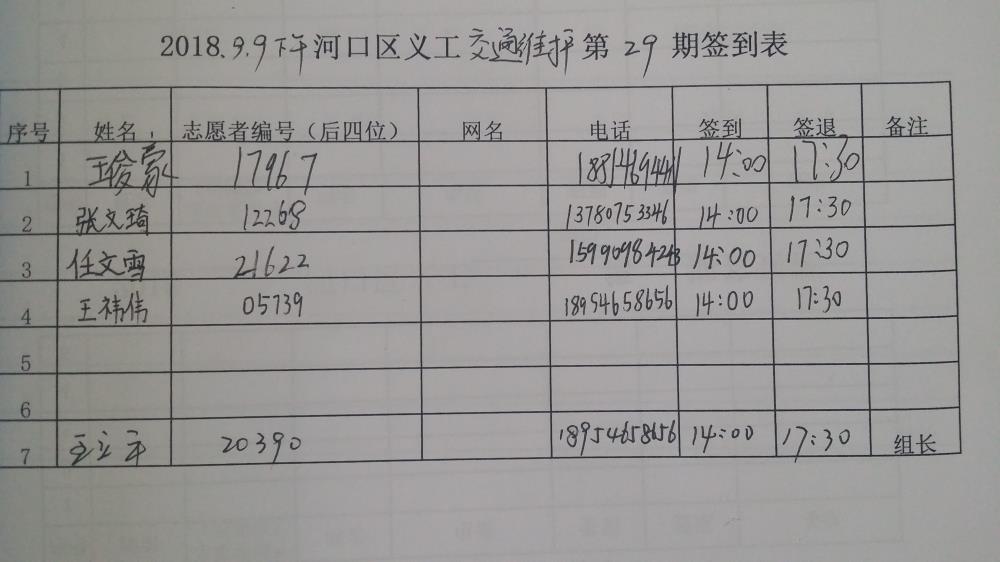 2018.9.9下午河口区义工交通维护第29期签到表
序号 姓名 志愿者编号（后四位） 网名 电话 签到 签退 备注
1 王俊豪 17967 14:00 17:30
2 张文琦 12268 13780753346 14:00 17:30
3 任文雪 21622 15990984243 14:00 17:30
4 王祎伟 05739 18954658656 14:00 17:30
5
6
7 王立平 20390 18954658656 14:00 17:30 组长